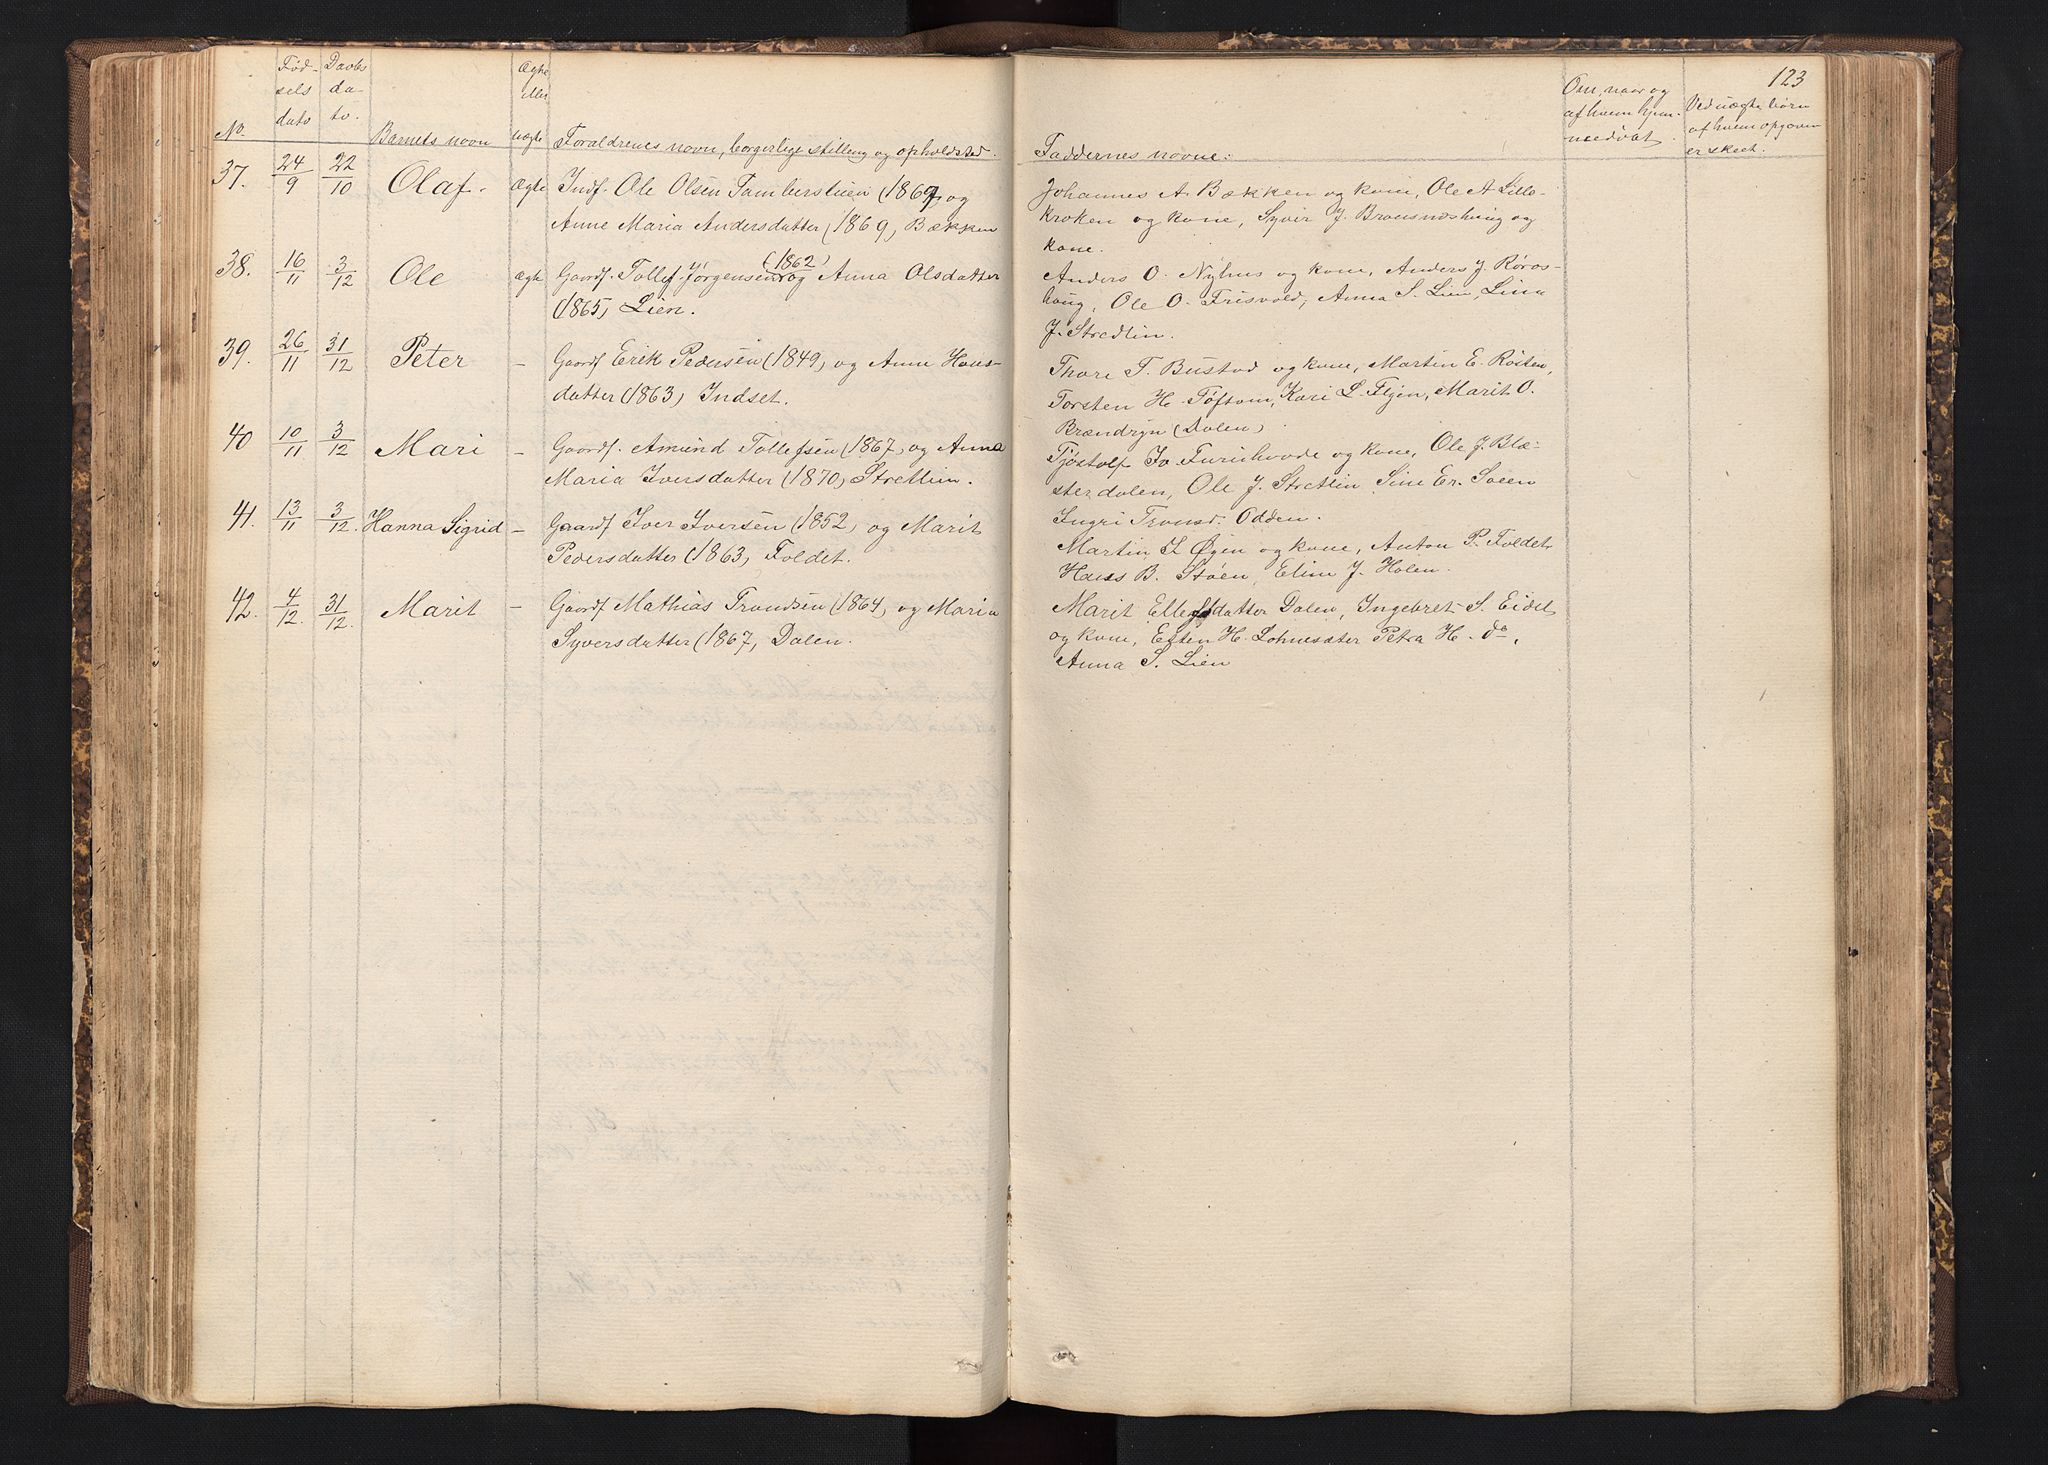 123
No.
Fød-
sels
dato
Daabs
da-
to.
Barnets navn
Ægte
eller
uægte
Forældrenes navn, borgerlige stilling og opholdsted.
Faddernes navne:
Om, naar og
af hvem hjem-
medøbt.
Ved uægte børn
af hvem opgaven
er skeet.
37. 24/9 22/10 Olaf. Ægte Inds. Ole Olsen Tamberslien (1869) og
Anne Maria Andersdatter (1869), Bækken
Johannes A. Bækken og kone, Ole A Lille-
kroken og kone, Syver J. og
kone.
38. 16/11 3/12 Ole ægte Gaardf. Tollef Jørgensen (1862) og Anna Olsdatter
(1865), Lien.
Anders O. Nyhus og kone, Anders J. Røros-
haug, Ole O. Frisvold, Anna S. Lien, Lina
J. Stredlin.
39. 26/11 31/12 Peter — Gaardf Erik Pedersen (1849), og Anne Hans-
datter (1863), Indset.
Thore T. Bustad og kone, Martin E. Røsten,
Torsten H. Toftum, Kari L. Flyen, Marit O.
Brændryn (Dalen)
40 10/11 3/12 Mari — Gaardf. Amund Tollefsen (1867), og Anna
Maria Iversdatter (1870), Stretlien.
Tjøstolf Iv. Furuhovde og kone, Ole J. Blæ-
sterdalen, Ole J. Stretlin, Sine Er. Soeen
Ingri Tronsd. Odden.
41. 13/11 3/12. Hanna Sigrid — Gaardf Iver Iversen (1852), og Marit
Pedersdatter (1863), Foldet.
Martin I. Øien og kone, Anton P. Foldet,
Hans B. Støen, Eline J. Holen.
42. 4/12. 31/12. Marit — Gaardf Mathias Trondsen (1864), og Maria
Syversdatter (1867), Dalen.
Marit Ellefsdatter Dalen, Ingebret S. Eidet
og kone, Esten H. Lohnesæter Petra H. do,
Anna S. Lien